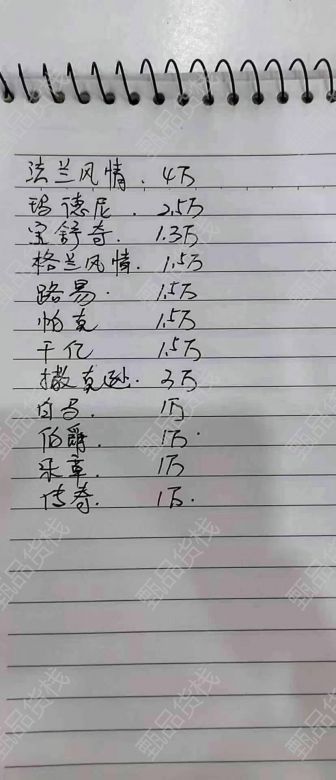 法兰风情. 4万
玛德尼. 2.5万
宝舒奇. 1.3万
格兰风情. 1.5万
路易. 1.5万
帕克 1.5万
千亿 1.5万
撒克逊. 2万
白与. 1万
伯爵. 1万.
乐章. 1万
传奇. 1万.
甄品货栈
甄品货栈
甄品货栈
甄品货栈
甄品货栈
甄品货栈